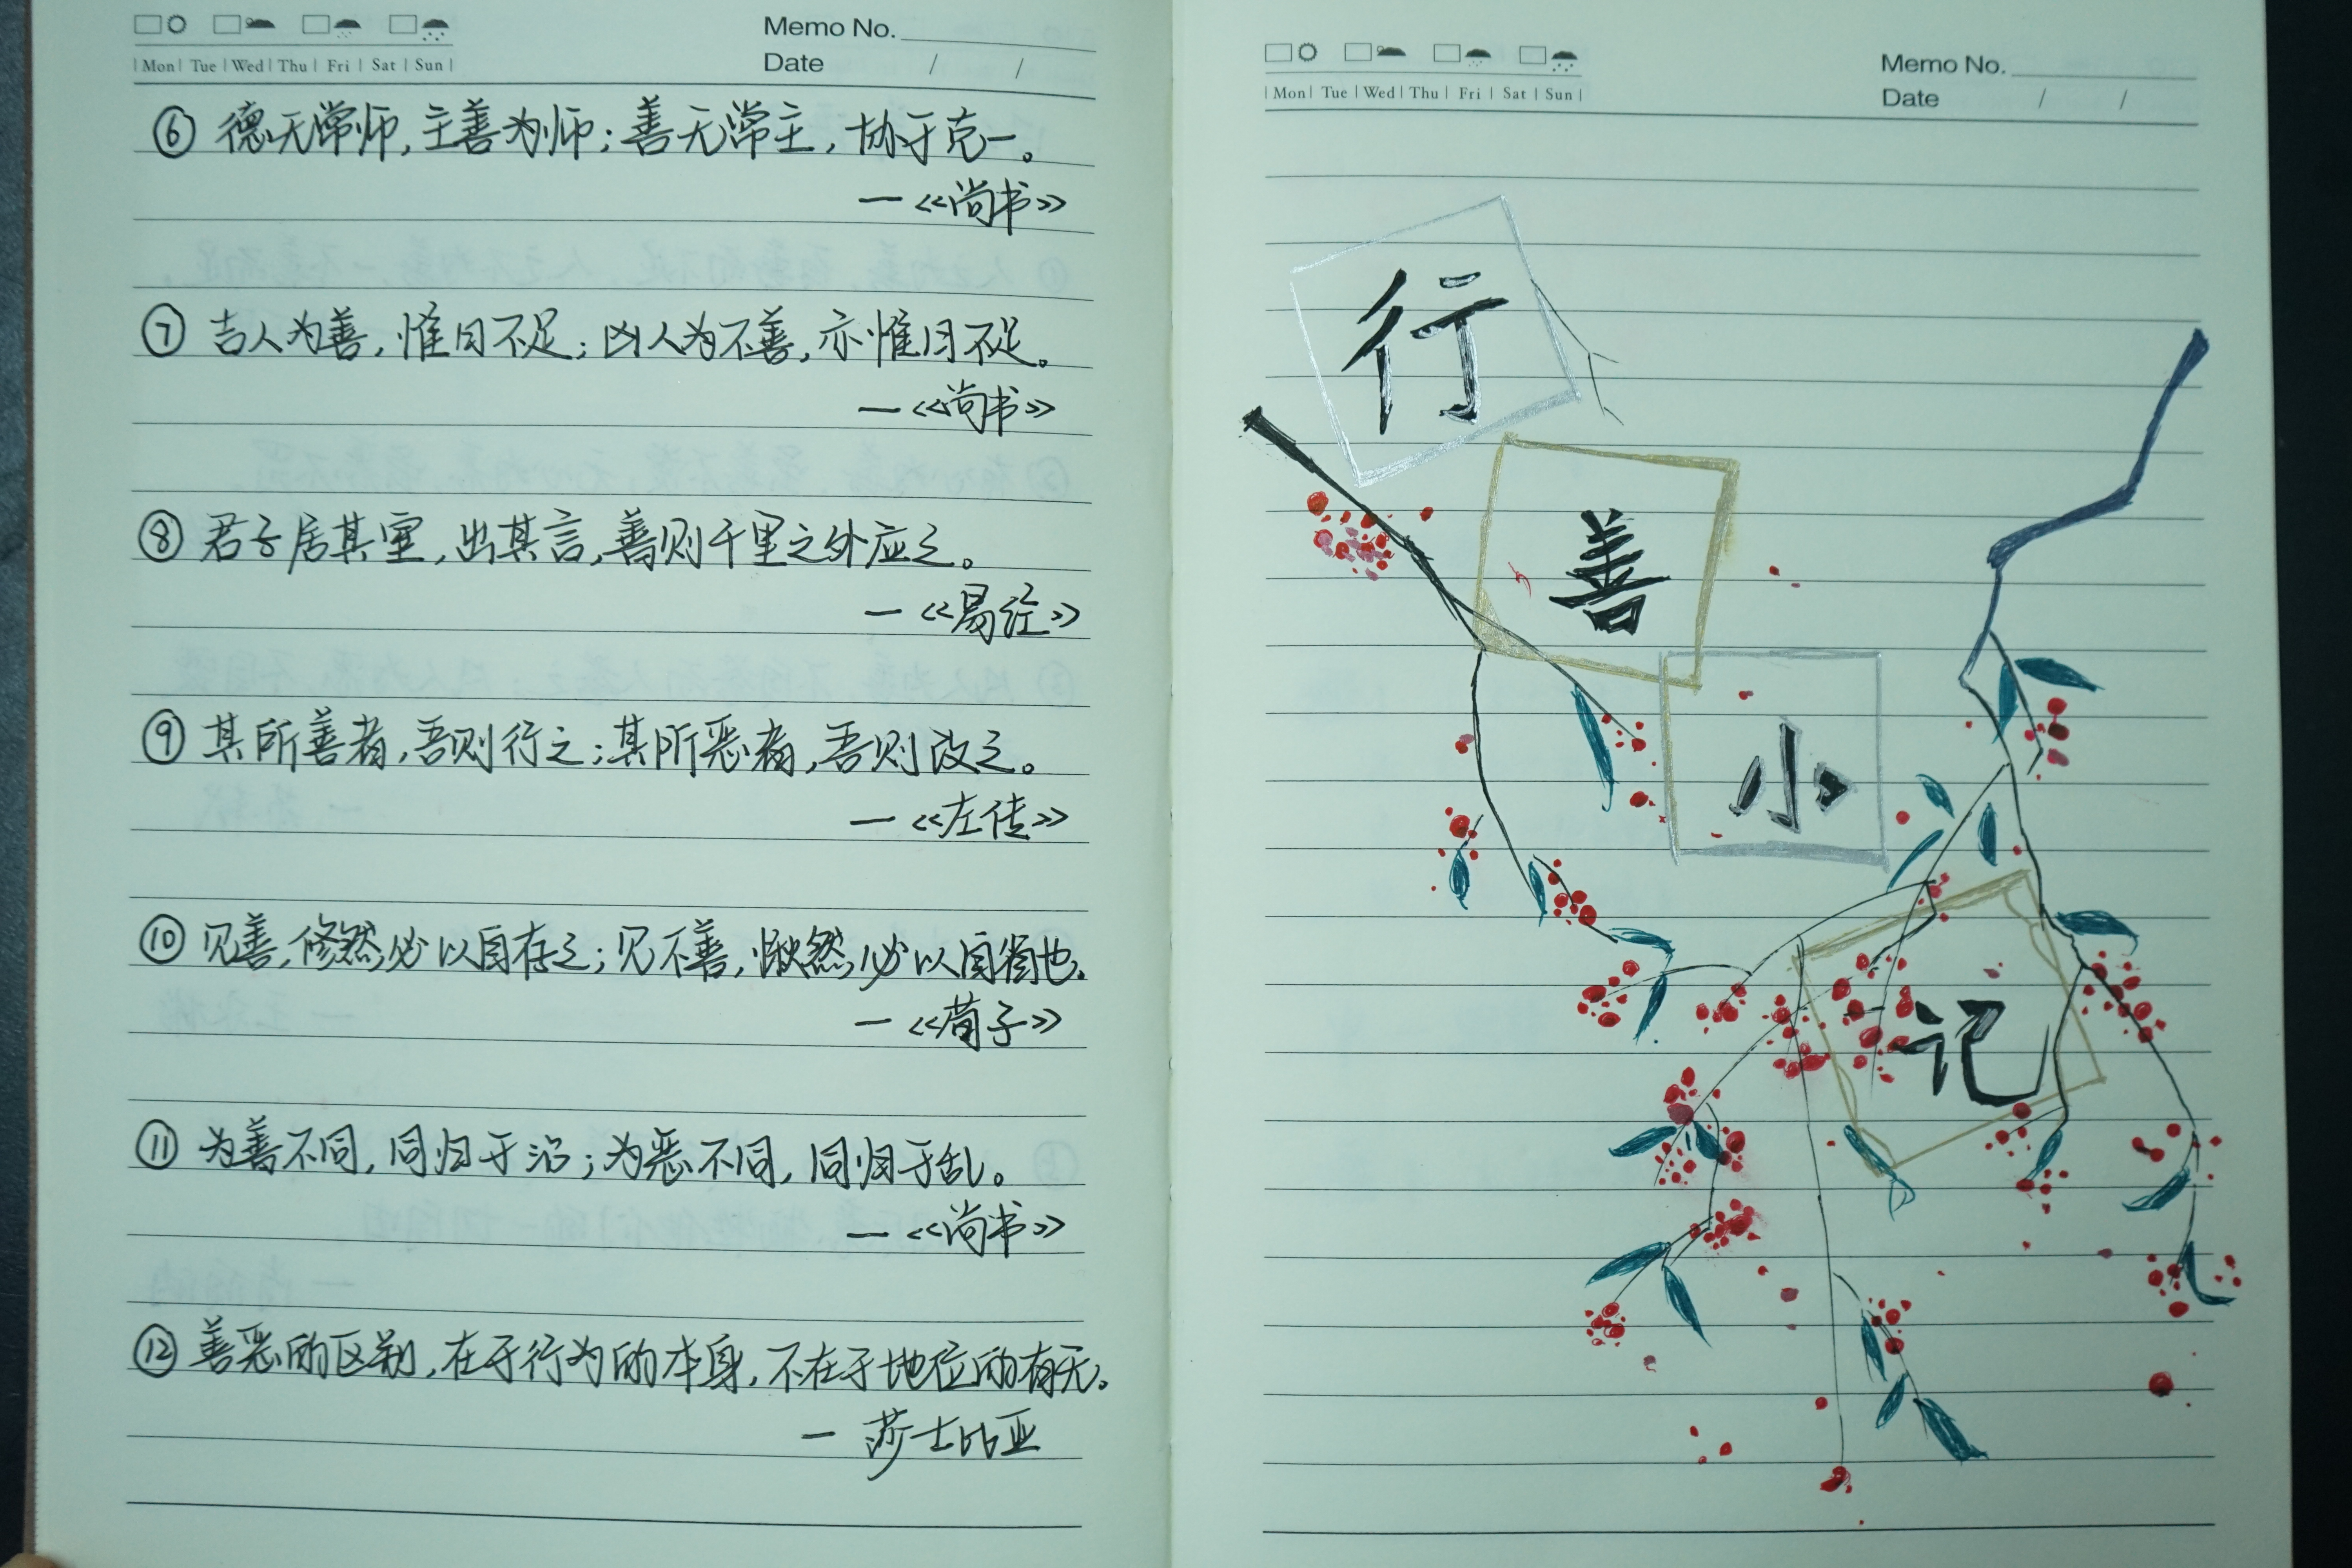 Mon Tue Wed Thu Fri Sat Sun
Memo No.
Date / /
⑥ 德无常师,主善为师;善无常主,协于克一。
—《尚书》
⑦ 吉人为善,惟日不足;凶人为不善,亦惟日不足。
—《尚书》
⑧ 君子居其室,出其言,善则千里之外应之。
—《易经》
⑨ 其所善者,吾则行之;其所恶者,吾则改之。
—《左传》
⑩ 见善,修然必以自存之;见不善,愀然必以自省也。
—《荀子》
⑪ 为善不同,同归于治;为恶不同,同归于乱。
—《尚书》
⑫ 善恶的区别,在于行为的本身,不在于地位的有无。
— 莎士比亚
Mon Tue Wed Thu Fri Sat Sun
Memo No.
Date / /
行
善
小
记